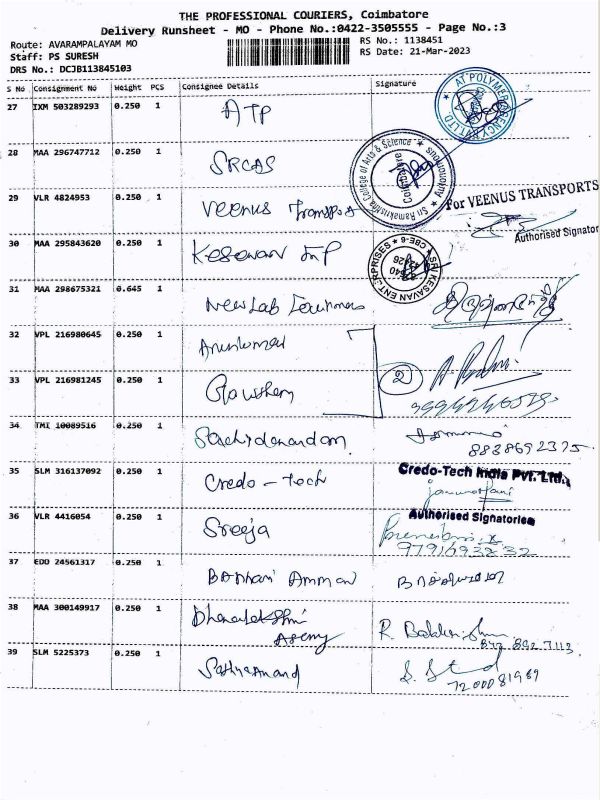 THE PROFESSIONAL COURIERS, Coimbatore
Delivery Runsheet - MO - Phone No.:0422-3505555 - Page No.:3
Route: AVARAMPALAYAM MO RS No.: 1138451
Staff: PS SURESH RS Date: 21-Mar-2023
DRS No.: DCJB113845103
S No Consignment No Weight PCS Consignee Details Signature
27 IXM 503289293 0.250 1 ATP
28 MAA 296747712 0.250 1 SRCAS
Sri Ramakrishna College of Arts & Science Autonomous Coimbatore
29 VLR 4824953 0.250 1 Veenus Transport
For VEENUS TRANSPORTS
Authorised Signator
30 MAA 295843620 0.250 1 Kesavan
SRI KESAVAN ENTERPRISES CBE-6
31 MAA 298675321 0.645 1 New Lab
32 VPL 216980645 0.250 1 Arunkumar
33 VPL 216981245 0.250 1 Gowtham
2
34 TMI 10089516 0.250 1 Sachidanandam
8838692375
35 SLM 316137092 0.250 1 Credo-tech
Credo-Tech India Pvt. Ltd.
Authorised Signatories
36 VLR 4416054 0.250 1 Sreeja
37 EDO 24561317 0.250 1 Bannari Amman
38 MAA 300149917 0.250 1 Dhanalakshmi
39 SLM 5225373 0.250 1 Sathyanand
7200081969